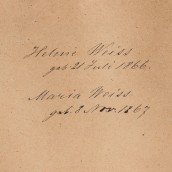 Helene Weiss
geb 21 Juli 1866.
Maria Weiss.
geb. 8 Nov. 1867